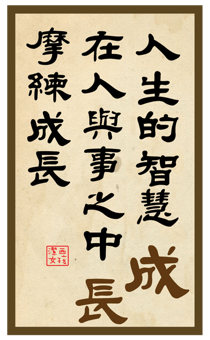 人生的智慧
在人與事之中
摩練成長
成長